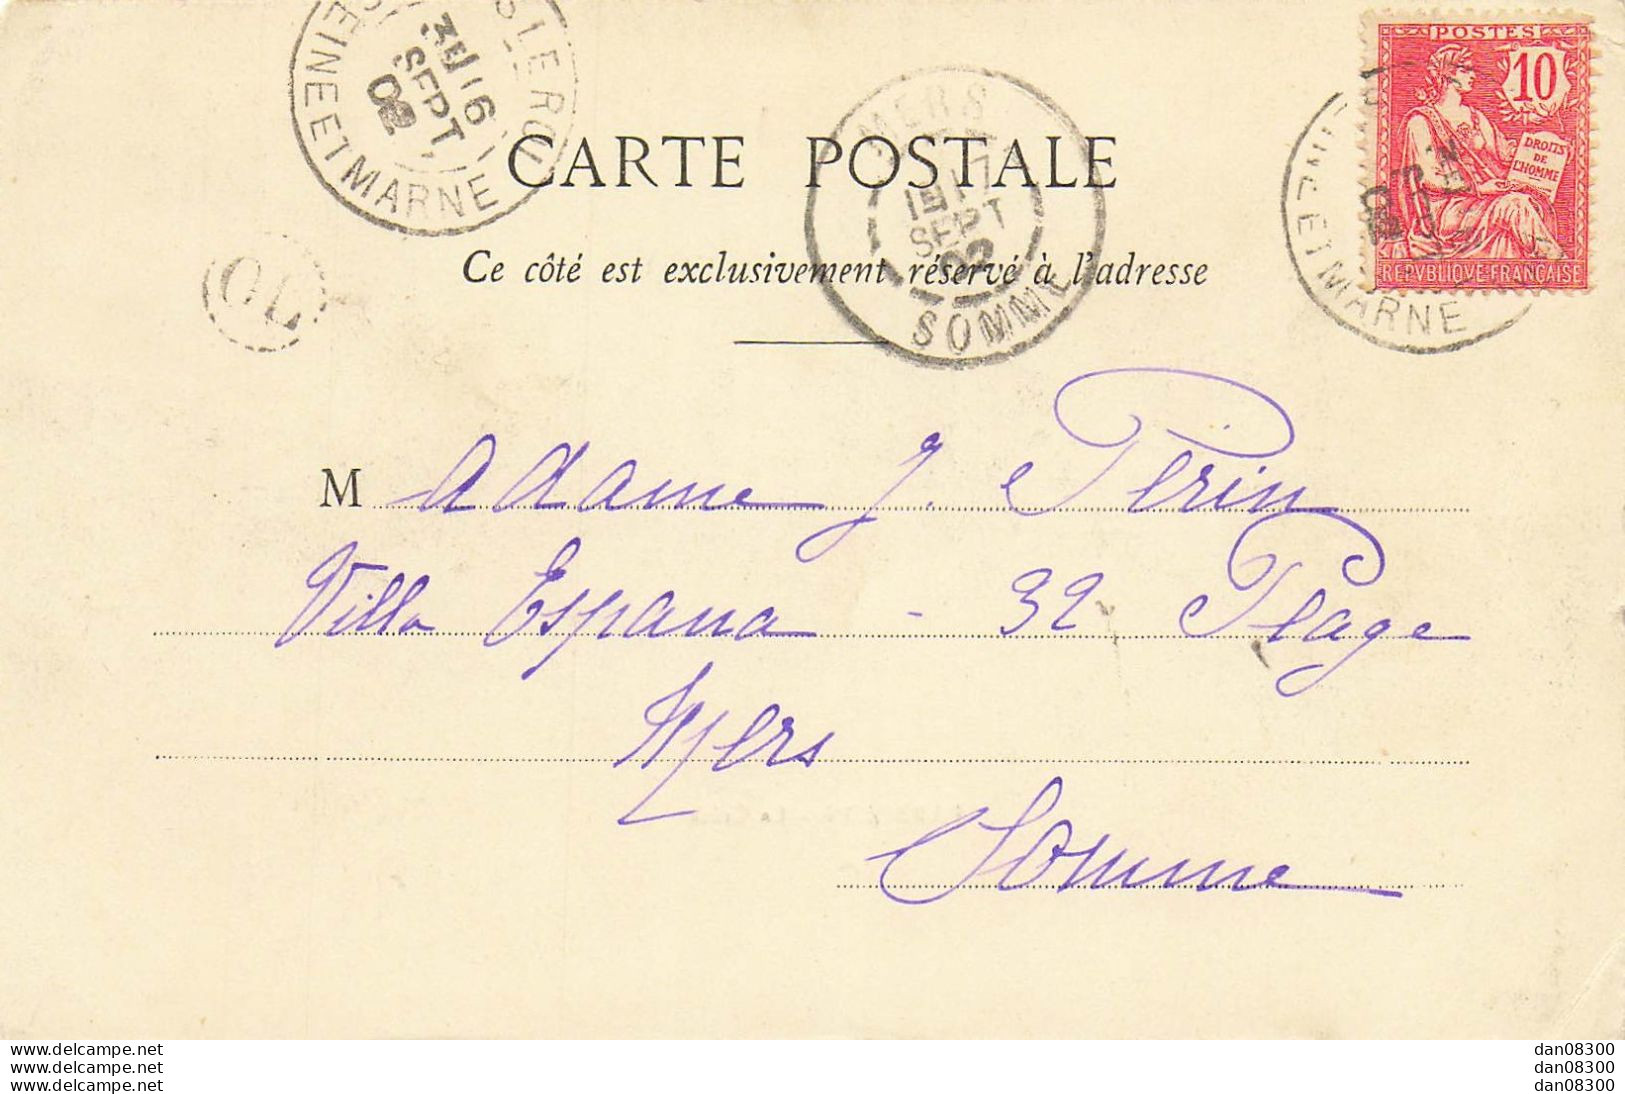 LE ROI
SEINE ET MARNE
3E 16
SEPT
02
MERS
1E 17
SEPT
02
SOMME
POSTES
10
DROITS
DE
L'HOMME
REPVBLIQVE FRANÇAISE
ET MARNE
CARTE POSTALE
Ce côté est exclusivement réservé à l'adresse
OL
Madame J. Périn
Villa Espana - 32 Plage
Mers
Somme
www.delcampe.net
www.delcampe.net
www.delcampe.net
dan08300
dan08300
dan08300